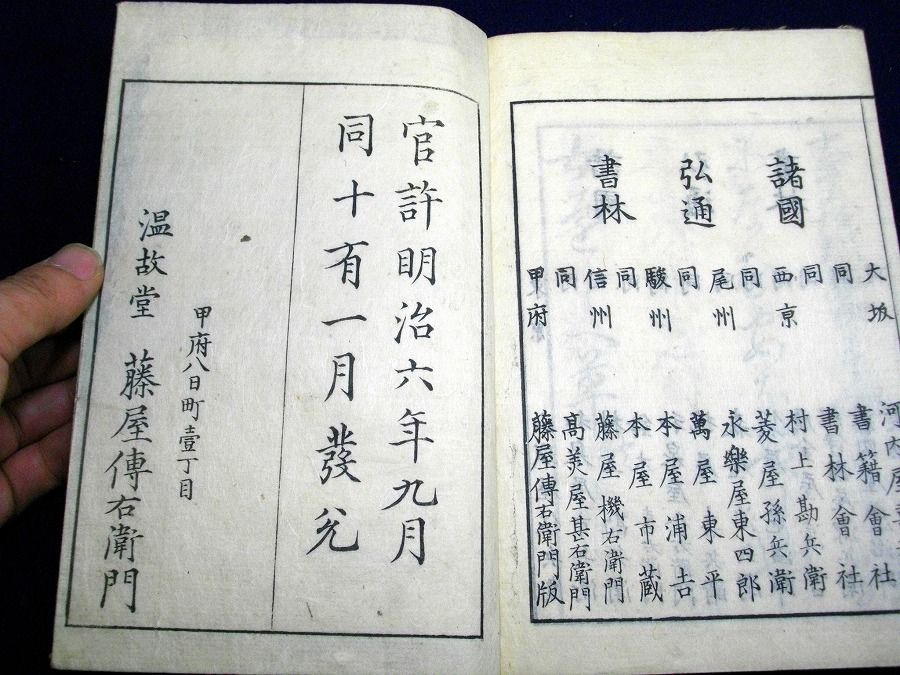 諸國
弘通
書林
大坂 河内屋
同 書籍會社
同 書林會社
西亰 村上勘兵衛
同 菱屋孫兵衛
尾州 永樂屋東四郎
同 萬屋東平
駿州 本屋浦吉
同 本屋市蔵
信州 藤屋機右衛門
同 高美屋甚右衛門
甲府 藤屋傳右衛門版
官許明治六年九月
同十有一月發兌
甲府八日町壹丁目
温故堂 藤屋傳右衛門